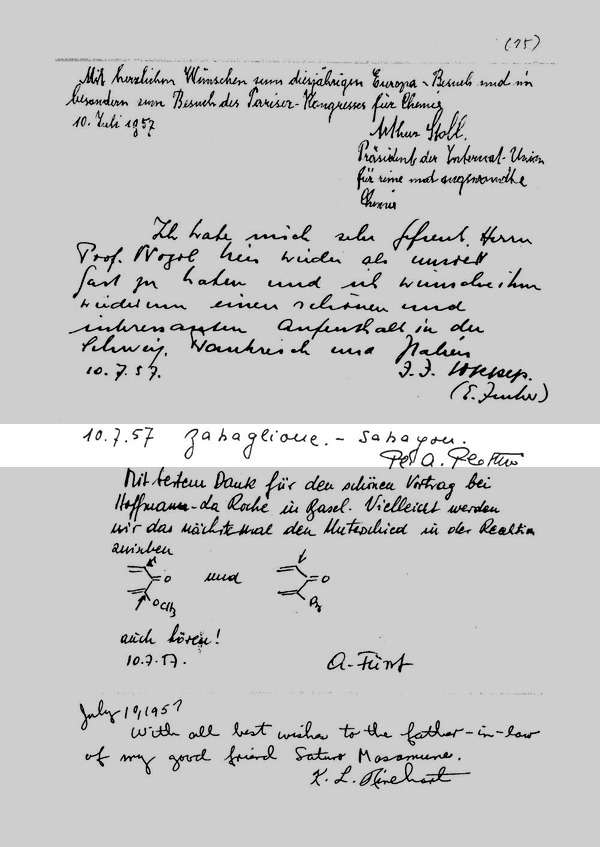 (25)
Mit herzlichen Wünschen zum diesjährigen Europa-Besuch und im
besondern zum Besuch des Pariser-Kongresses für Chemie
10. Juli 1957
Arthur Stoll.
Präsident der Internat-Union
für reine und angewandte
Chemie
Ich habe mich sehr gefreut, Herrn
Prof. Nozol hier wieder als unsern
Gast zu haben und ich wünsche ihm
wiederum einen schönen und
interessanten Aufenthalt in der
Schweiz, Frankreich und Italien
10.7.57.
10.7.57 Zabaglione. - Sabayon.
Pl. A. Plattner
Mit bestem Dank für den schönen Vortrag bei
Hoffmann-da Roche in Basel. Vielleicht werden
wir das nächste mal den Unterschied in der Reaktion
zwischen
O OCH3 und O
auch hören!
10.7.57.
A. Fürst
July 10, 1957
With all best wishes to the father-in-law
of my good friend Saturo Masamune.
K. L. Rinehart